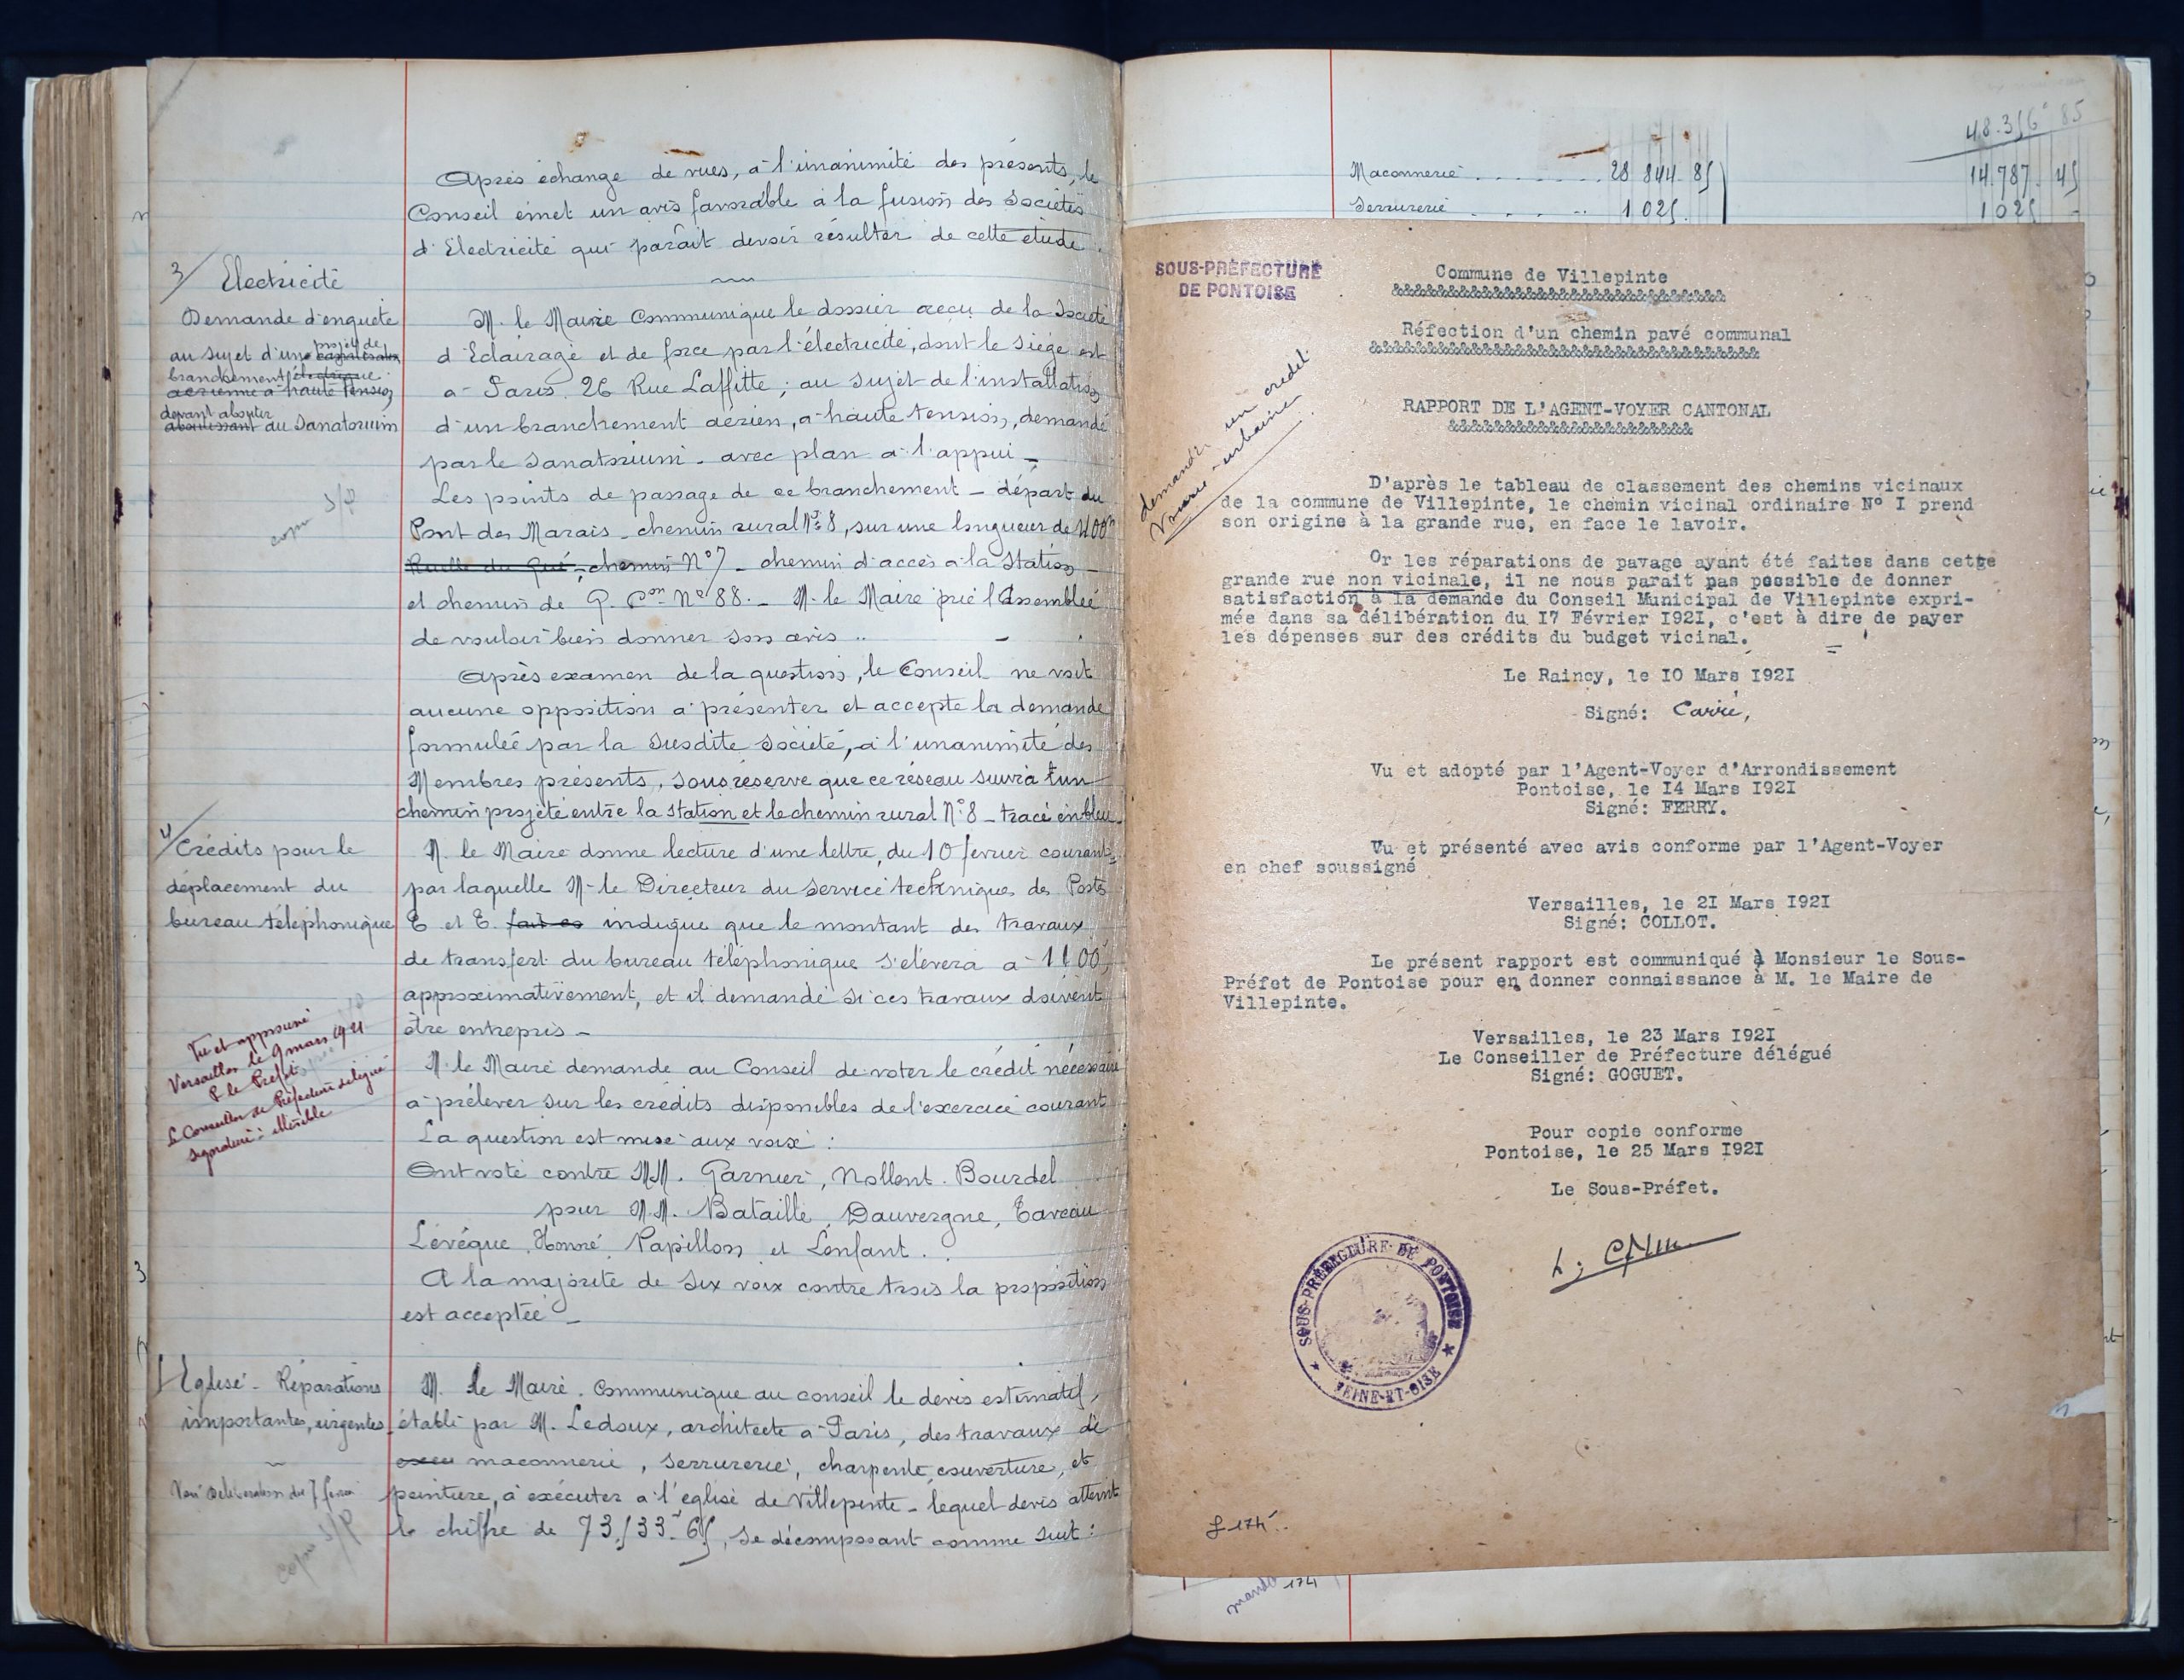 Après échange de vues, à l'unanimité des présents, le
Conseil émet un avis favorable à la fusion des Sociétés
d'Electricité qui paraît devoir résulter de cette étude.
3/ Electricité
Demande d'enquête
au sujet d'un projet de
branchement électrique
aérienne à haute tension
devant aboutir
aboutissant au Sanatorium
copie S/P
M. le Maire Communique le dossier reçu de la Société
d'Eclairage et de force par l'électricité, dont le siège est
à Paris. 26 Rue Laffitte; au sujet de l'installation
d'un branchement aérien, à haute tension, demandé
par le Sanatorium - avec plan à l'appui -
Les points de passage de ce branchement - départ du
Pont des Marais - chemin rural N° 8, sur une longueur de 400m
Ruelle du Gué, chemin N° 7 - chemin d'accès à la Station
et chemin de G. Con N° 88. - M. le Maire prie l'Assemblée
de vouloir bien donner son avis ..
Après examen de la question, le Conseil ne voit
aucune opposition à présenter et accepte la demande
formulée par la susdite Société, à l'unanimité des
Membres présents, sous réserve que ce réseau suivra un
chemin projeté entre la station et le chemin rural N° 8 - tracé en bleu.
4/ Crédits pour le
déplacement du
bureau téléphonique
M. le Maire donne lecture d'une lettre, du 10 février courant,
par laquelle M. le Directeur du Service technique des Postes
T. et T. fait co indique que le montant des travaux
de transfert du bureau téléphonique s'élèvera à 1100f
approximativement, et il demande si ces travaux doivent
être entrepris -
Vu et approuvé
Versailles le 9 mars 1921
P. le Préfet
Le Conseiller de Préfecture délégué
signature: illisible
M. le Maire demande au Conseil de voter le crédit nécessaire
à prélever sur les crédits disponibles de l'exercice courant
La question est mise aux voix :
Ont voté contre MM. Garnier, Nollent. Bourdel
pour M.M. Bataille, Dauvergne, Taveau
Lévêque, Honoré, Papillon et Lenfant.
A la majorité de six voix contre trois la proposition
est acceptée -
Eglise - Réparations
importantes, urgentes
Voir délibération du 7 février
copie S/P
M. le Maire. Communique au conseil le devis estimatif,
établi par M. Ledoux, architecte à Paris, des travaux de
maçonnerie, serrurerie, charpente, couverture, et
peinture, à exécuter à l'église de Villepinte - lequel devis atteint
le chiffre de 73.533f 65, se décomposant comme suit :
48.356 85
Maçonnerie . . . . . . . 28 844 85 14.787 45
Serrurerie . . . . . 1 025. 1 025 -
SOUS-PRÉFECTURE
DE PONTOISE
Commune de Villepinte
&&&&&&&&&&&&&&&&&&&&&&&&&&&&&&
Réfection d'un chemin pavé communal
&&&&&&&&&&&&&&&&&&&&&&&&&&&&&&&&&&&
demander un crédit
Voirie urbaine
RAPPORT DE L'AGENT-VOYER CANTONAL
&&&&&&&&&&&&&&&&&&&&&&
D'après le tableau de classement des chemins vicinaux
de la commune de Villepinte, le chemin vicinal ordinaire N° I prend
son origine à la grande rue, en face le lavoir.
Or les réparations de pavage ayant été faites dans cette
grande rue non vicinale, il ne nous parait pas possible de donner
satisfaction à la demande du Conseil Municipal de Villepinte expri-
mée dans sa délibération du I7 Février I92I, c'est à dire de payer
les dépenses sur des crédits du budget vicinal.
Le Raincy, le IO Mars I92I
Signé: Carré,
Vu et adopté par l'Agent-Voyer d'Arrondissement
Pontoise, le I4 Mars I92I
Signé: FERRY.
Vu et présenté avec avis conforme par l'Agent-Voyer
en chef soussigné
Versailles, le 2I Mars I92I
Signé: COLLOT.
Le présent rapport est communiqué à Monsieur le Sous-
Préfet de Pontoise pour en donner connaissance à M. le Maire de
Villepinte.
Versailles, le 23 Mars I92I
Le Conseiller de Préfecture délégué
Signé: GOGUET.
Pour copie conforme
Pontoise, le 25 Mars I92I
Le Sous-Préfet.
SOUS-PRÉFECTURE DE PONTOISE
★ SEINE-ET-OISE ★
f 174
174